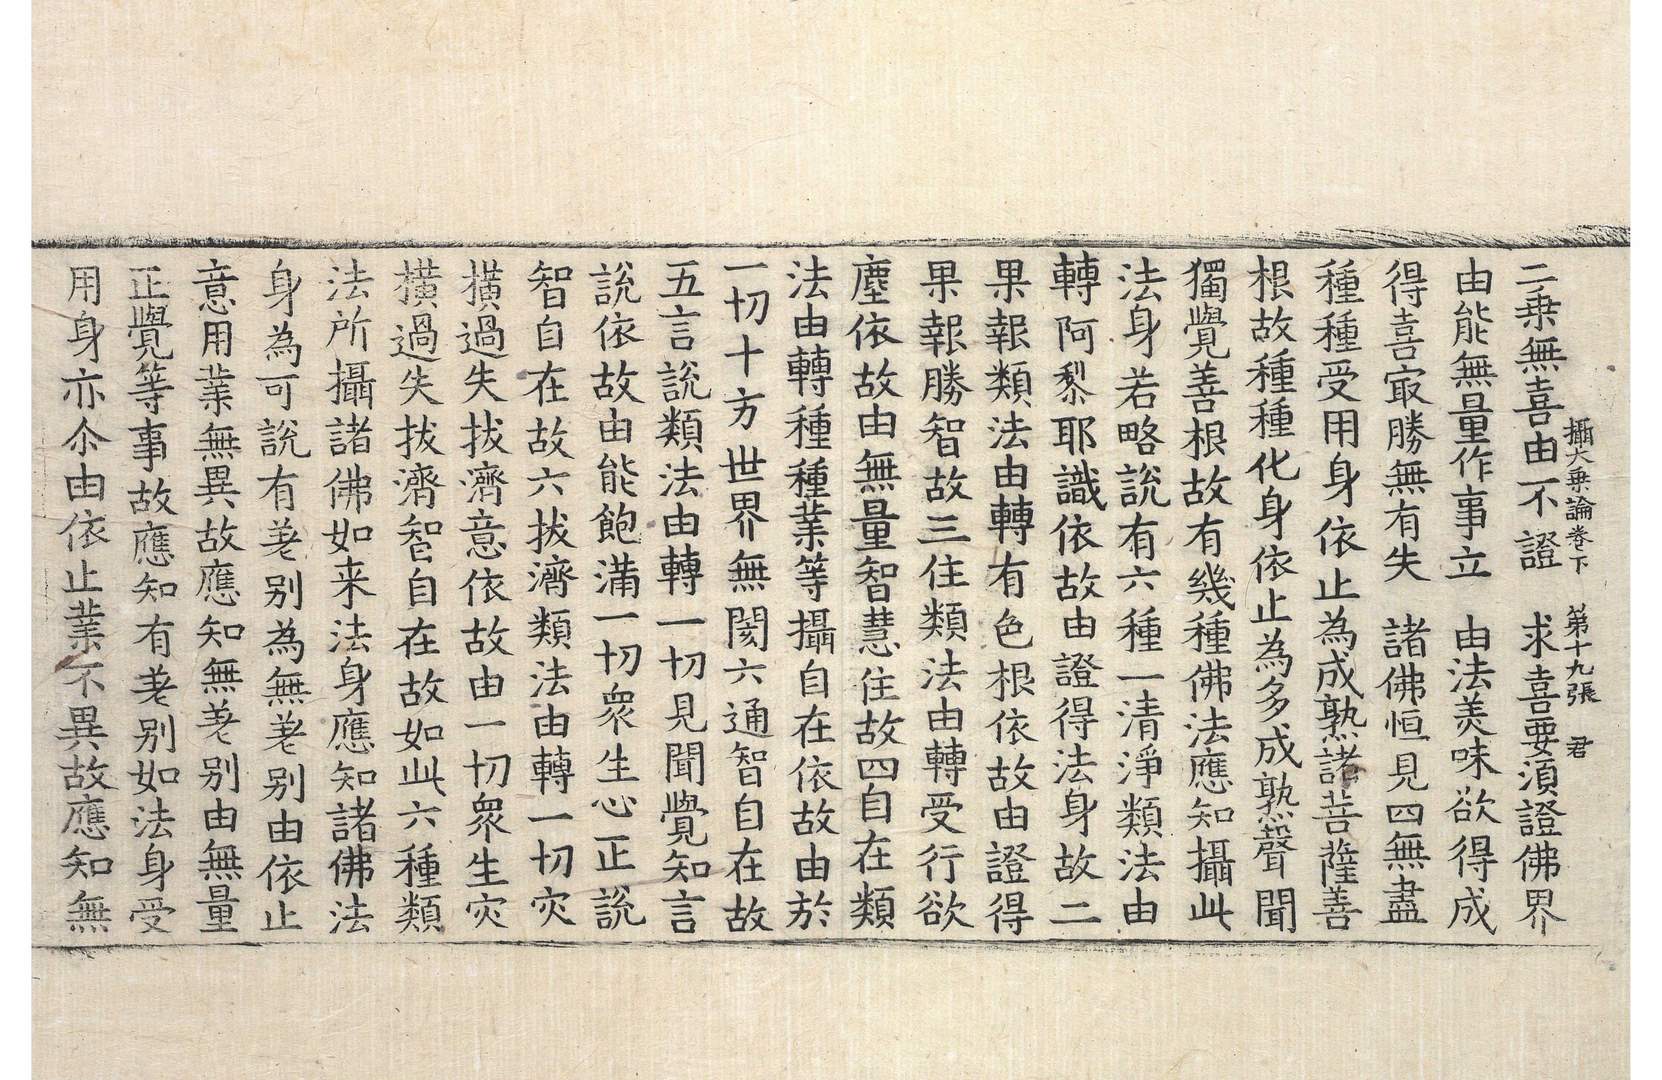 攝大乗論卷下 第十九張 君
二乗無喜由不證 求喜要湏證佛界
由能無量作事立 由法羙味欲得成
得喜㝡勝無有失 諸佛恒見四無盡
種種受用身依止為成熟諸菩薩善
根故種種化身依止為多成熟聲聞
獨覺善根故有幾種佛法應知攝此
法身若略說有六種一清淨類法由
轉阿棃耶識依故由證得法身故二
果報類法由轉有色根依故由證得
果報勝智故三住類法由轉受行欲
塵依故由無量智慧住故四自在類
法由轉種種業等攝自在依故由扵
一切十方世界無閡六通智自在故
五言說類法由轉一切見聞覺知言
說依故由能飽滿一切衆生心正說
智自在故六拔濟類法由轉一切灾
撗過失拔濟意依故由一切衆生灾
撗過失拔濟智自在故如此六種類
法所攝諸佛如来法身應知諸佛法
身為可說有差别為無差别由依止
意用業無異故應知無差别由無量
正覺等事故應知有差别如法身受
用身亦尒由依止業不異故應知無